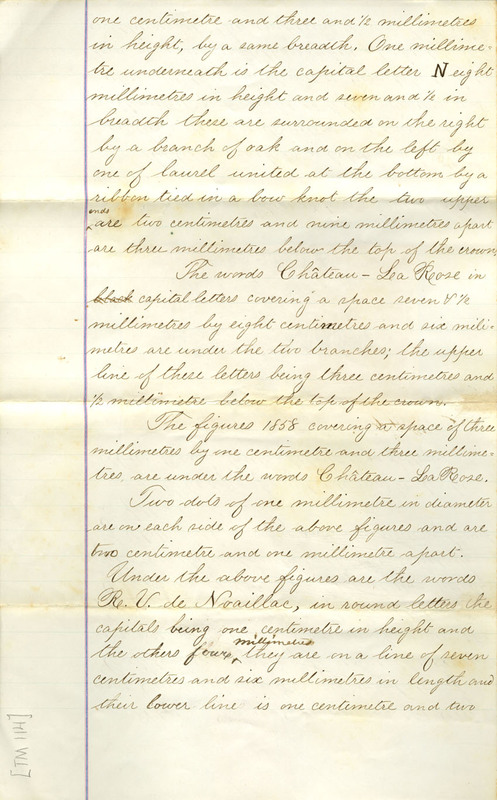 one centimetre and three and ½ millimetres
in height, by a same breadth. One millime-
tre underneath is the capital letter N eight
millimetres in height and seven and ½ in
breadth these are surrounded on the right
by a branch of oak and on the left by
one of laurel united at the bottom by a
ribbon tied in a bow knot the two upper
ends
are two centimetres and nine millimetres apart
are three millimetres below the top of the crown.
The words Château - La Rose in
black capital letters covering a space seven & ½
millimetres by eight centimetres and six mili-
metres are under the two branches; the upper
line of these letters being three centimetres and
½ millimetre below the top of the crown.
The figures 1858 covering a space of three
millimetres by one centimetre and three millime-
tres, are under the words Château - La Rose.
Two dots of one millimetre in diameter
are on each side of the above figures and are
two centimetre and one millimetre apart.
Under the above figures are the words
R. V. de Noaillac, in round letters the
capitals being one centimetre in height and
millimetres
the others four, they are on a line of seven
centimetres and six millimetres in length and
their lower line is one centimetre and two
[TM 114]